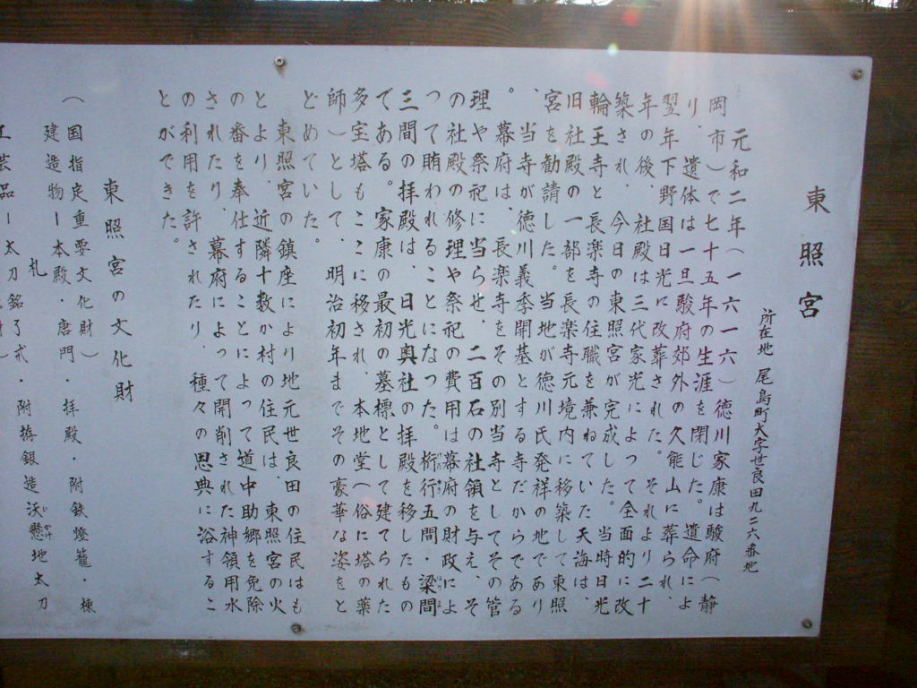 東照宮
所在地 尾島町大字世良田九二六番地
元和二年(一六一六)徳川家康は駿府(静
岡市)で七十五年の生涯を閉じた。遺命によ
り、遺体は一旦駿府郊外の久能山に葬られ、
翌年下野国日光に改葬された。それより二十
年の後、社殿は三代家光によって全面的に改
築され、今日の東照宮が完成した。当時日光
輪王寺と長楽寺の住職を兼ねていた天海は、
旧社殿の一部を長楽寺元境内に移築して東照
宮を勧請した。当地が徳川氏発祥の地であり
、当寺が徳川義季開基とする寺だからである
。幕府は、長楽寺をその別当寺としてその管
理や祭祀に当らせ、二百石の社領を与え、そ
の社殿の修理や祭祀の費用は幕府の財政によ
って賄われることになった。桁行五間・梁間
三間の拝殿は、日光奥社の拝殿を移したもの
である。家康の最初の墓標として建てられた
多宝塔もここに移され、本地堂(俗に塔の薬
師)として、明治初年までその豪華な姿をと
どめていた。
東照宮の鎮座により地元世良田の住民はも
とより、近隣十数か村の住民は、東照宮の火
の番を奉仕することによって道中助郷を免除
されたり、幕府によって開削された神領用水
の利用を許されたり、種々の恩典に浴するこ
とができた。
東照宮の文化財
(国指定重要文化財)
建造物ー本殿・唐門・拝殿・附鉄燈籠・棟
札
工芸品ー太刀銘了戒・附拵銀造沃懸地太刀